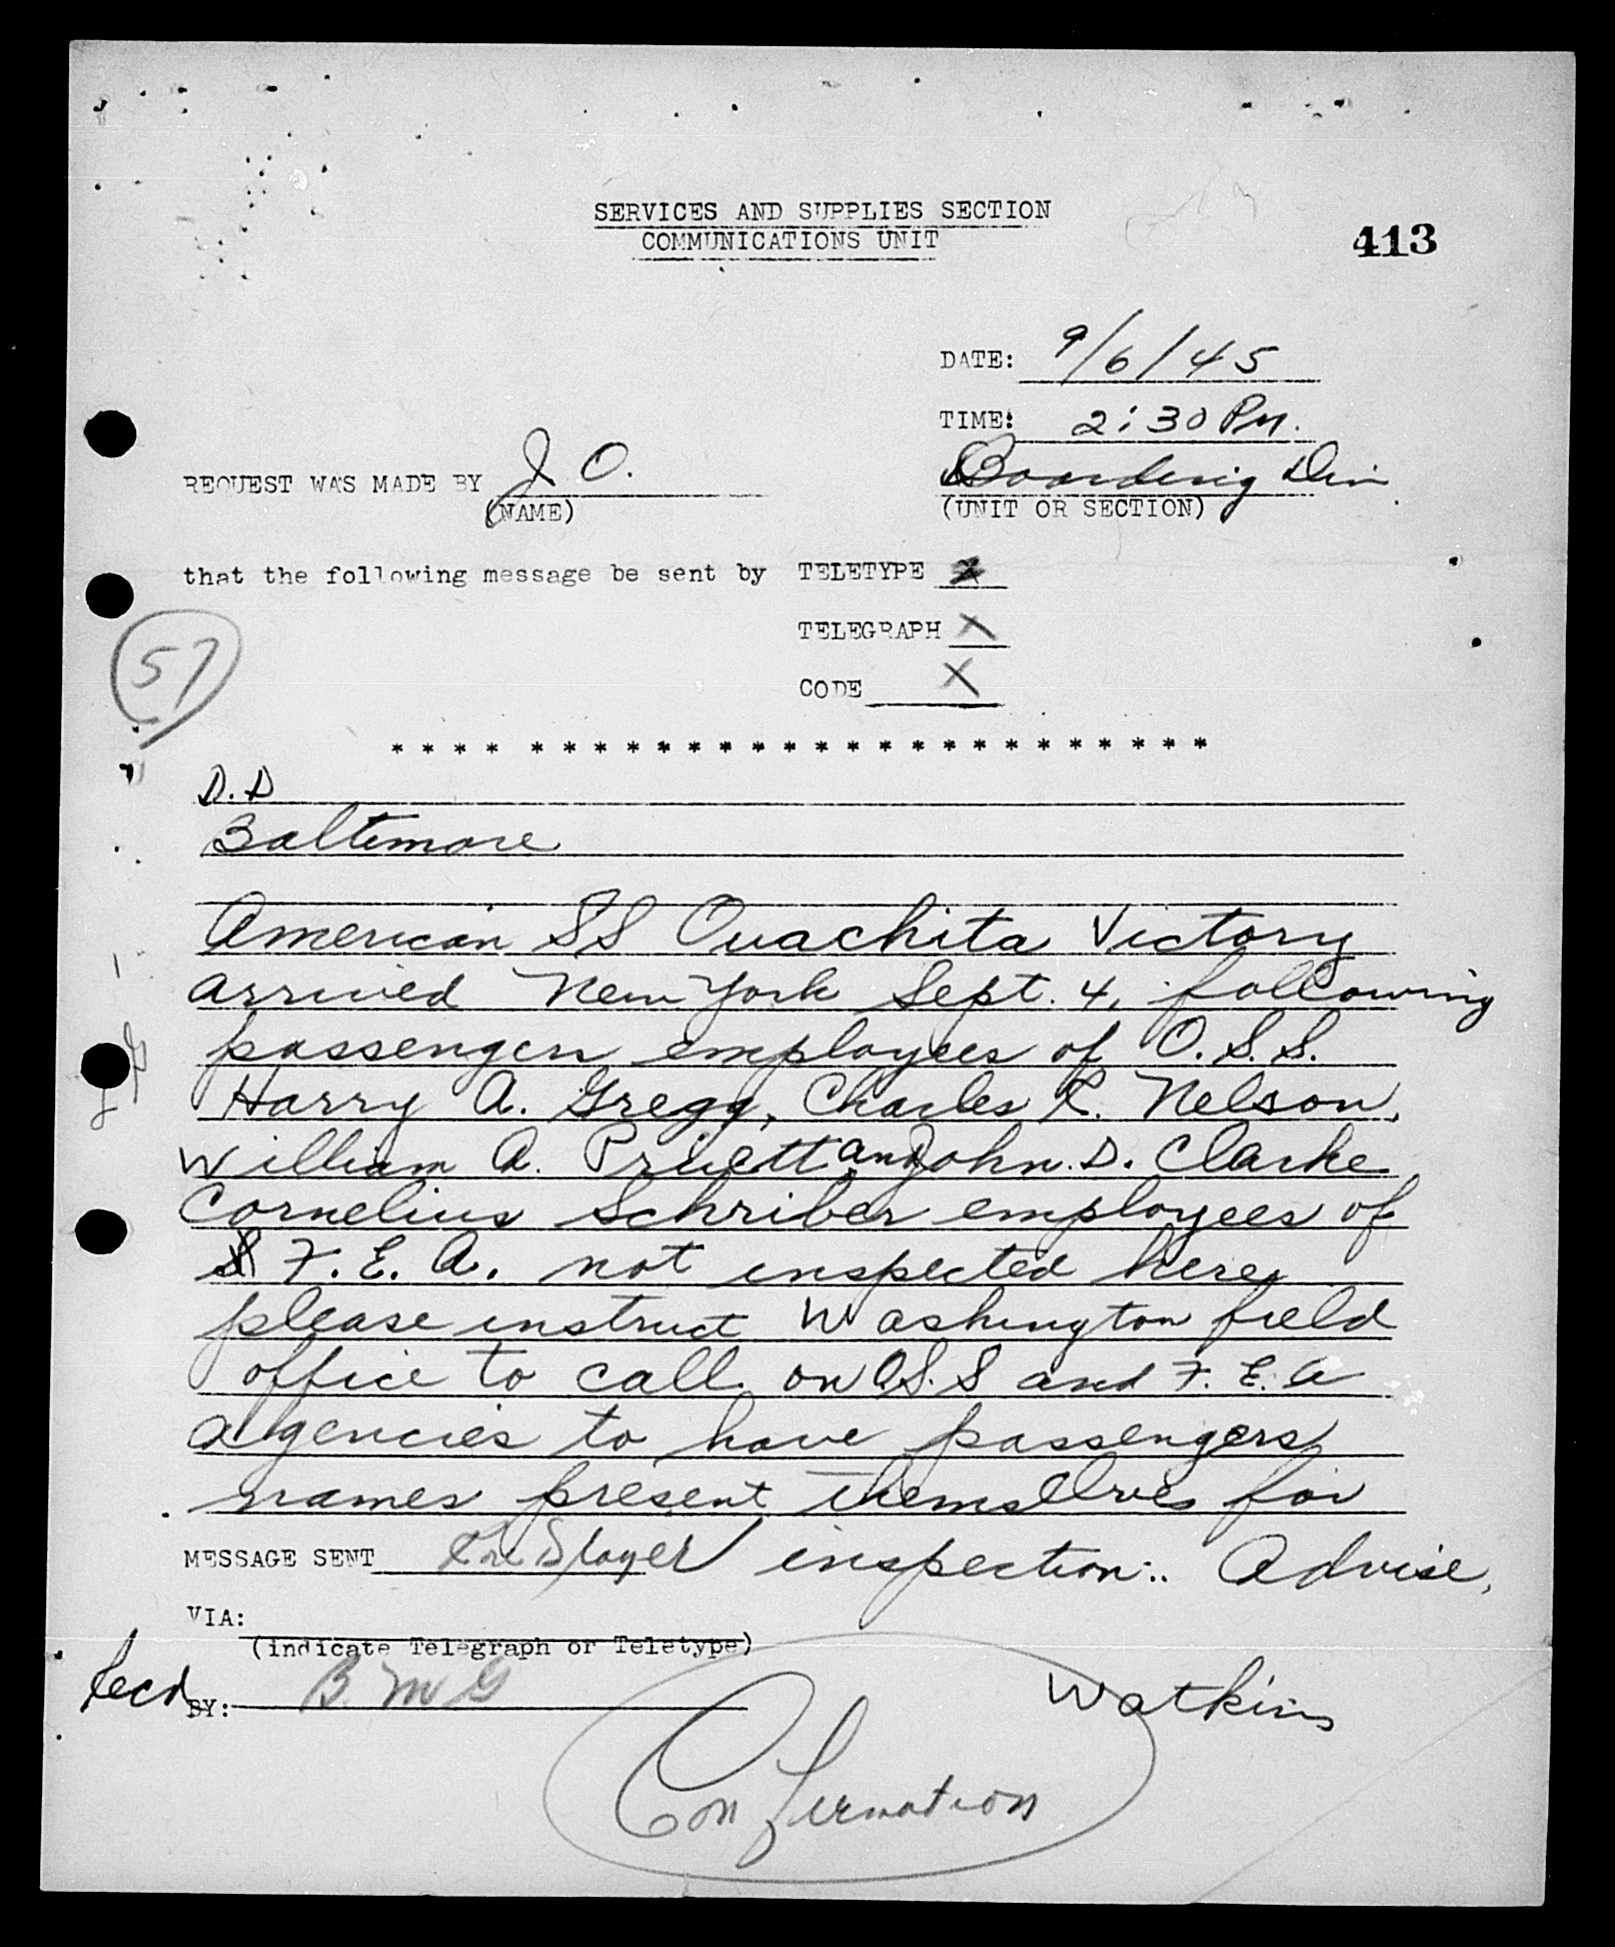 SERVICES AND SUPPLIES SECTION
COMMUNICATIONS UNIT
413
DATE: 9/6/45
TIME: 2:30 PM.
REQUEST WAS MADE BY J. O.
(NAME)
Boarding Div
(UNIT OR SECTION)
that the following message be sent by TELETYPE X
TELEGRAPH X
CODE X
57
* * * * * * * * * * * * * * * * * * * * * * * * * *
D. D
Baltimore
American SS Ouachita Victory
arrived New York Sept. 4, following
passengers employees of O. S. S.
Harry A. Gregg, Charles R. Nelson,
William A. Pruett and John. D. Clarke
Cornelius Schriber employees of
F. E. A. not inspected here
please instruct Washington field
office to call on O.S.S and F. E. A
agencies to have passengers
names present themselves for
MESSAGE SENT Slayer inspection.. Advise.
VIA:
(indicate Telegraph or Teletype)
Recd BY: B. Mc G
Watkins
Confirmation